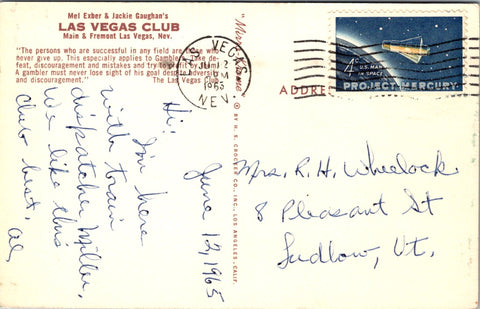 Mel Exber & Jackie Gaughan's
LAS VEGAS CLUB
Main & Fremont Las Vegas, Nev.
"The persons who are successful in any field are those who
never give up. This especially applies to Gamblers. Take de-
feat, discouragement and mistakes and try to profit by them!
A gambler must never lose sight of his goal despite adversity
and discouragement." The Las Vegas Club
VEGAS
JUN 12
PM
1965
NEV
4¢ U.S. MAN
IN SPACE
PROJECT MERCURY
ADDRE
BY H. S. CROCKER CO., INC., LOS ANGELES, CALIF.
June 12, 1965
Hi!
I'm here
with train
dispatcher Miller,
We like this
club best.
Al
Mrs. R. H. Wheelock
8 Pleasant St
Ludlow, Vt.